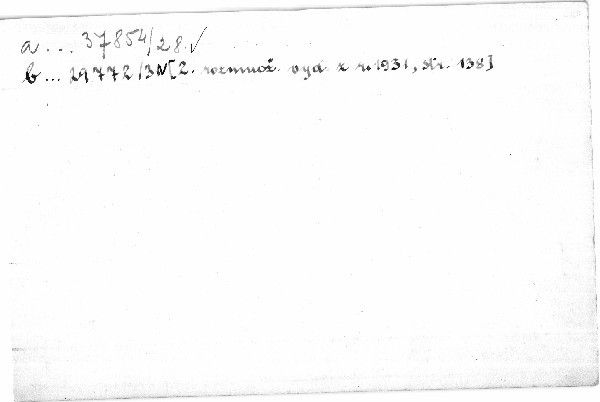 a ... 37854/28 ✓
b ... 29772/31 [2. rozmnož. vyd. z r. 1931, str. 138]